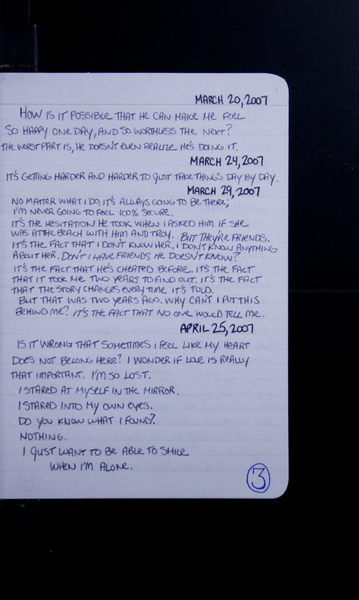 MARCH 20, 2007
HOW IS IT POSSIBLE THAT HE CAN MAKE ME FEEL
SO HAPPY ONE DAY, AND SO WORTHLESS THE NEXT?
THE WORST PART IS, HE DOESN'T EVEN REALIZE HE'S DOING IT.
MARCH 24, 2007
IT'S GETTING HARDER AND HARDER TO JUST TAKE THINGS DAY BY DAY.
MARCH 29, 2007
NO MATTER WHAT I DO, IT'S ALWAYS GOING TO BE THERE;
I'M NEVER GOING TO FEEL 100% SECURE.
IT'S THE HESITATION HE TOOK WHEN I ASKED HIM IF SHE
WAS AT THE BEACH WITH HIM AND TROY. BUT THEY'RE FRIENDS.
IT'S THE FACT THAT I DON'T KNOW HER, I DON'T KNOW ANYTHING
ABOUT HER. DON'T I HAVE FRIENDS HE DOESN'T KNOW?
IT'S THE FACT THAT HE'S CHEATED BEFORE. IT'S THE FACT
THAT IT TOOK ME TWO YEARS TO FIND OUT. IT'S THE FACT
THAT THE STORY CHANGES EVERY TIME IT'S TOLD.
BUT THAT WAS TWO YEARS AGO. WHY CAN'T I PUT THIS
BEHIND ME? IT'S THE FACT THAT NO ONE WOULD TELL ME.
APRIL 25, 2007
IS IT WRONG THAT SOMETIMES I FEEL LIKE MY HEART
DOES NOT BELONG HERE? I WONDER IF LOVE IS REALLY
THAT IMPORTANT. I'M SO LOST.
I STARED AT MYSELF IN THE MIRROR.
I STARED INTO MY OWN EYES.
DO YOU KNOW WHAT I FOUND?
NOTHING.
I JUST WANT TO BE ABLE TO SMILE
WHEN I'M ALONE.
3